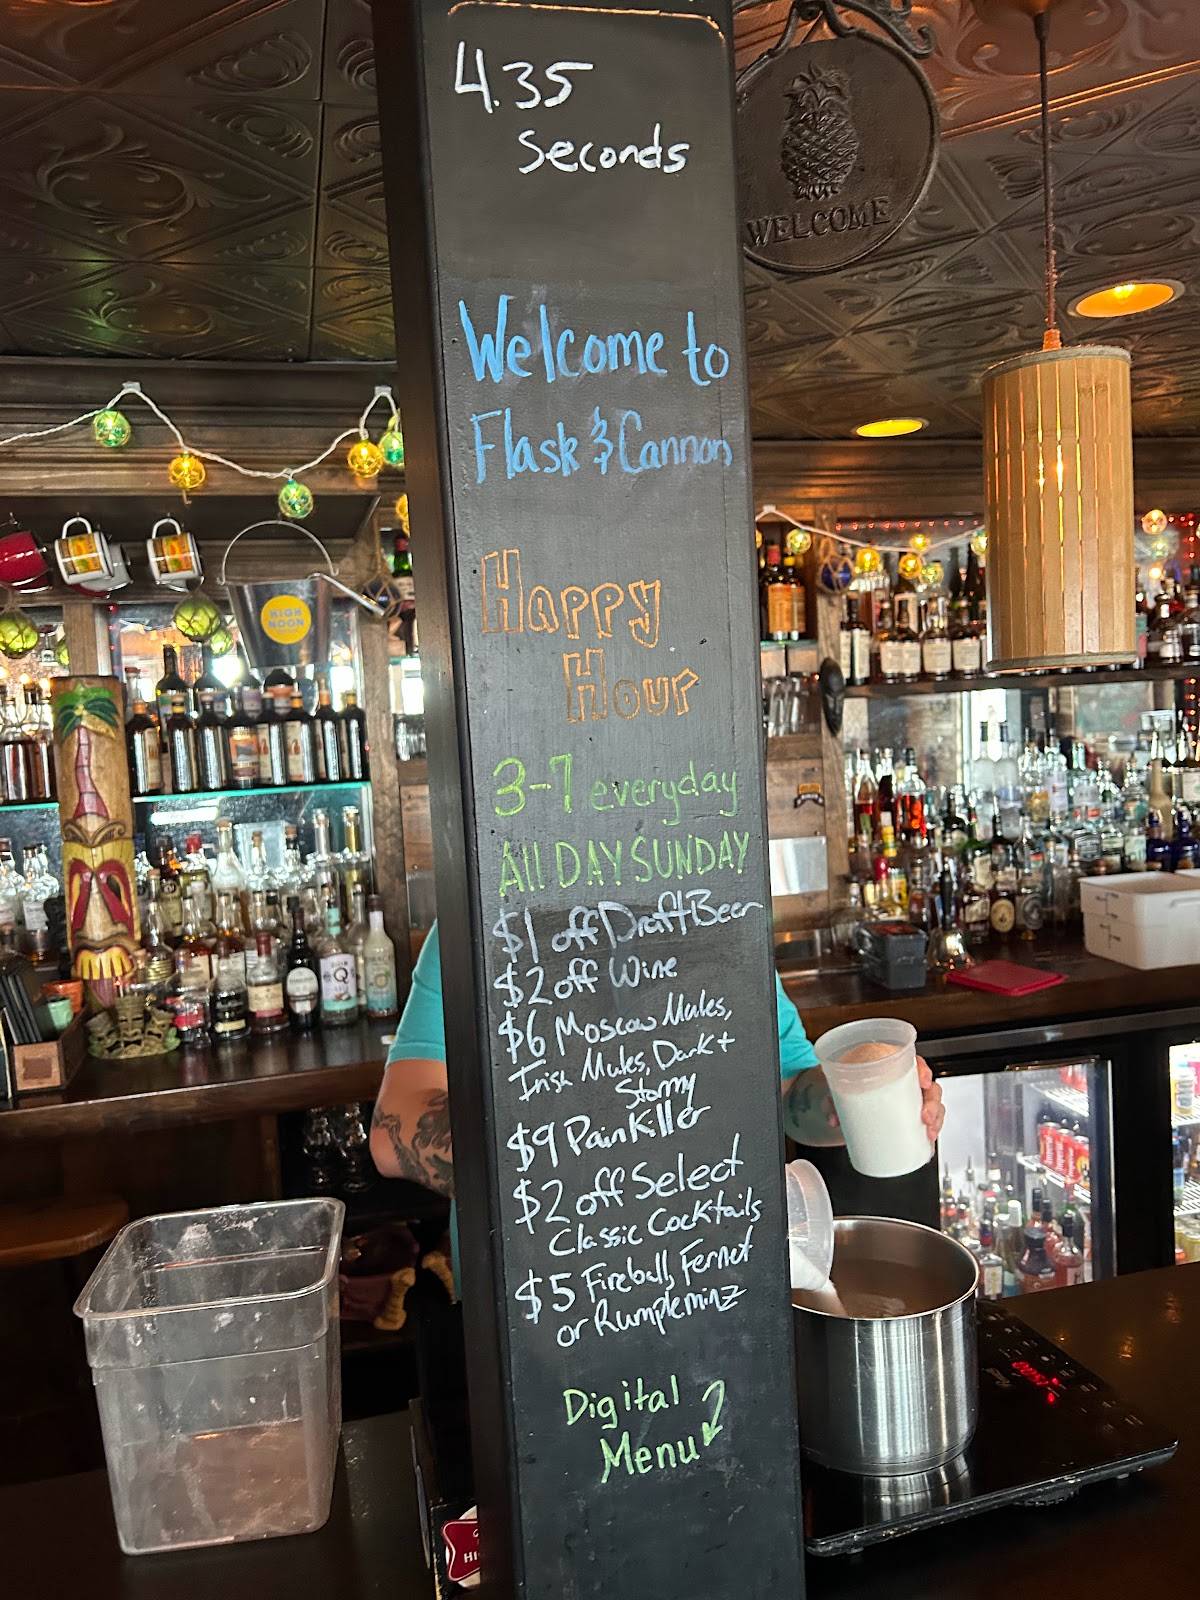 4.35
seconds
WELCOME
Welcome to
Flask & Cannon
Happy
Hour
3-7 everyday
All DAY SUNDAY
$1 off Draft Beer
$2 off Wine
$6 Moscow Mules,
Irish Mules, Dark +
Stormy
$9 Pain Killer
$2 off Select
Classic Cocktails
$5 Fireball, Fernet
or Rumpleminz
Digital
Menu
HIGH
NOON